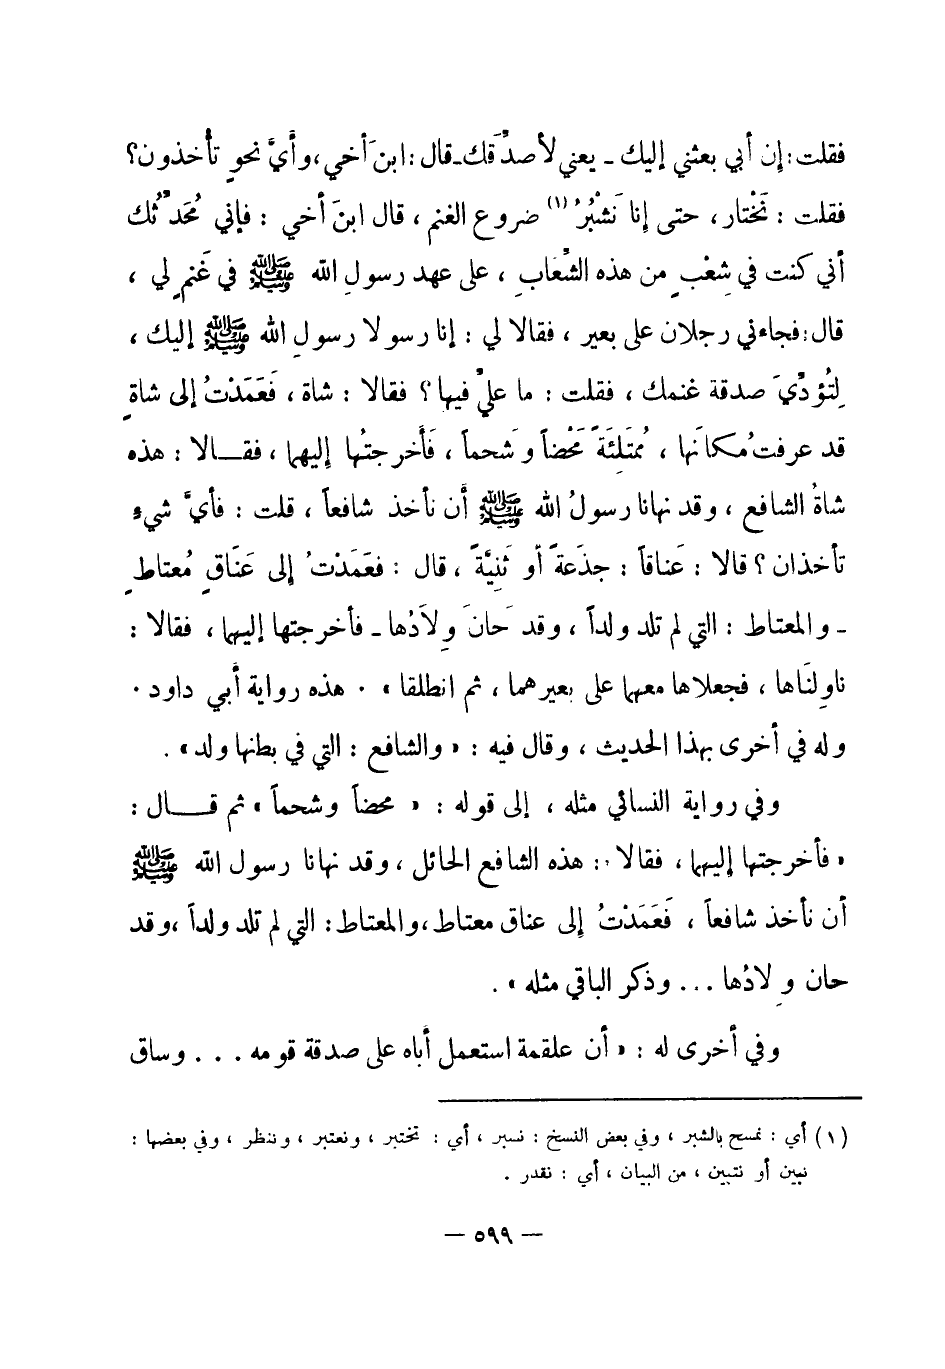 فقلت : إن أبي بعثني إليك - يعني لأصدِّقك - قال : ابنَ أخي ، وأيَّ نحوٍ تأخذون؟
فقلت : نَخْتار ، حتى إنا نَشْبُرُ (١) ضروع الغنم ، قال ابنَ أخي : فإني مُحَدِّثُك
أني كنت في شِعْبٍ من هذه الشِّعابِ ، على عهد رسولِ الله ﷺ في غَنمٍ لي ،
قال : فجاءني رجلان على بعير ، فقالا لي : إنا رسولا رسولِ الله ﷺ إليك ،
لِتُؤدِّيَ صدقة غنمك ، فقلت : ما عليَّ فيها ؟ فقالا : شاة ، فَعَمَدْتُ إلى شاةٍ
قد عرفتُ مكانَها ، مُمْتَلِئَةً مَحْضاً وشَحماً ، فَأَخرجتُها إليهما ، فقــالا : هذه
شاةُ الشافع ، وقد نهانا رسولُ الله ﷺ أن نأخذ شافعاً ، قلت : فأيَّ شيءٍ
تأخذان ؟ قالا : عَناقاً : جذَعةً أو ثَنِيَّةً ، قال : فعَمَدْتُ إلى عَنَاقٍ مُعتاطٍ
- والمعتاط : التي لم تلد ولداً ، وقد حَانَ وِلَادُها - فأخرجتها إليهما ، فقالا :
ناوِلنَاها ، فجعلاها معهما على بعيرهما ، ثم انطلقا » . هذه رواية أبي داود .
وله في أخرى بهذا الحديث ، وقال فيه : « والشافع : التي في بطنها ولد » .
وفي رواية النسائي مثله ، إلى قوله : « محضاً وشحماً » ثم قــال :
« فأخرجتها إليهما ، فقالا : هذه الشافع الحائل ، وقد نهانا رسول الله ﷺ
أن نأخذ شافعاً ، فَعَمَدْتُ إلى عناق معتاط ، والمعتاط : التي لم تلد ولداً ، وقد
حان وِلادُها ... وذكر الباقي مثله » .
وفي أخرى له : « أن علقمة استعمل أباه على صدقة قومه ... وساق
(١) أي : نمسح بالشبر ، وفي بعض النسخ : نسبر ، أي : نختبر ، ونعتبر ، وننظر ، وفي بعضها :
نبين أو نتبين ، من البيان ، أي : نقدر .
— ٥٩٩ —